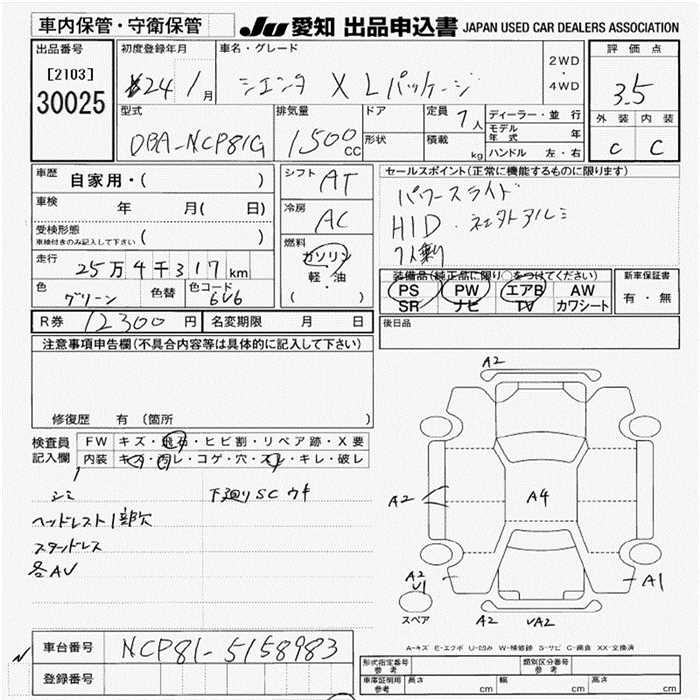 車内保管・守衛保管
JU 愛知 出品申込書 JAPAN USED CAR DEALERS ASSOCIATION
出品番号
[2103]
30025
初度登録年月
24 1月
車名・グレード
シエンタ X Lパッケージ
2WD
・
4WD
評価点
3.5
外装 内装
C C
型式
DBA-NCP81G
排気量
1500cc
ドア
形状
定員 7人
積載 kg
ディーラー・並行
モデル年式 年
ハンドル 左・右
車歴 自家用・( )
車検 年 月( 日)
受検形態
車検付きのみ記入して下さい ( )
走行 25万4千317km
色 グリーン 色替 色コード 6V6
シフト AT
冷房 AC
燃料
ガソリン
軽・油
( )
セールスポイント(正常に機能するものに限ります)
パワースライド
HID・社外アルミ
7人乗り
装備品(純正品に限り○をつけてください)
PS PW エアB AW
SR ナビ TV カワシート
新車保証書
有・無
R券 12300円 名変期限 月 日
後日品
注意事項申告欄(不具合内容等は具体的に記入して下さい)
修復歴 有(箇所 )
検査員記入欄
FW キズ・飛石・ヒビ割・リペア跡・X要
内装 キズ・汚レ・コゲ・穴・スレ・キレ・破レ
シミ 下廻りSCウキ
ヘッドレスト1部欠
スタッドレス
各AV
A2
A2
A4
A2
V1
A1
スペア
A2
VA2
A-キズ E-エクボ U-凹み W-補修跡 S-サビ C-腐食 XX-交換済
車台番号 NCP81-5158983
登録番号
形式指定番号 参考
類別区分番号 参考
車庫証明用 参考 長さ cm 幅 cm 高さ cm